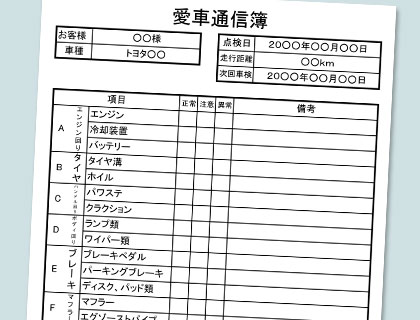 愛車通信簿
お客様 〇〇様
車種 トヨタ〇〇
点検日 20〇〇年〇〇月〇〇日
走行距離 〇〇km
次回車検 20〇〇年〇〇月〇〇日
項目 正常 注意 異常 備考
A エンジン回り エンジン
冷却装置
バッテリー
B タイヤ タイヤ溝
ホイル
C ハンドル回り パワステ
クラクション
D ボディ回り ランプ類
ワイパー類
E ブレーキ ブレーキペダル
パーキングブレーキ
ディスク、パッド類
F マフラー マフラー
エグゾーストパイプ